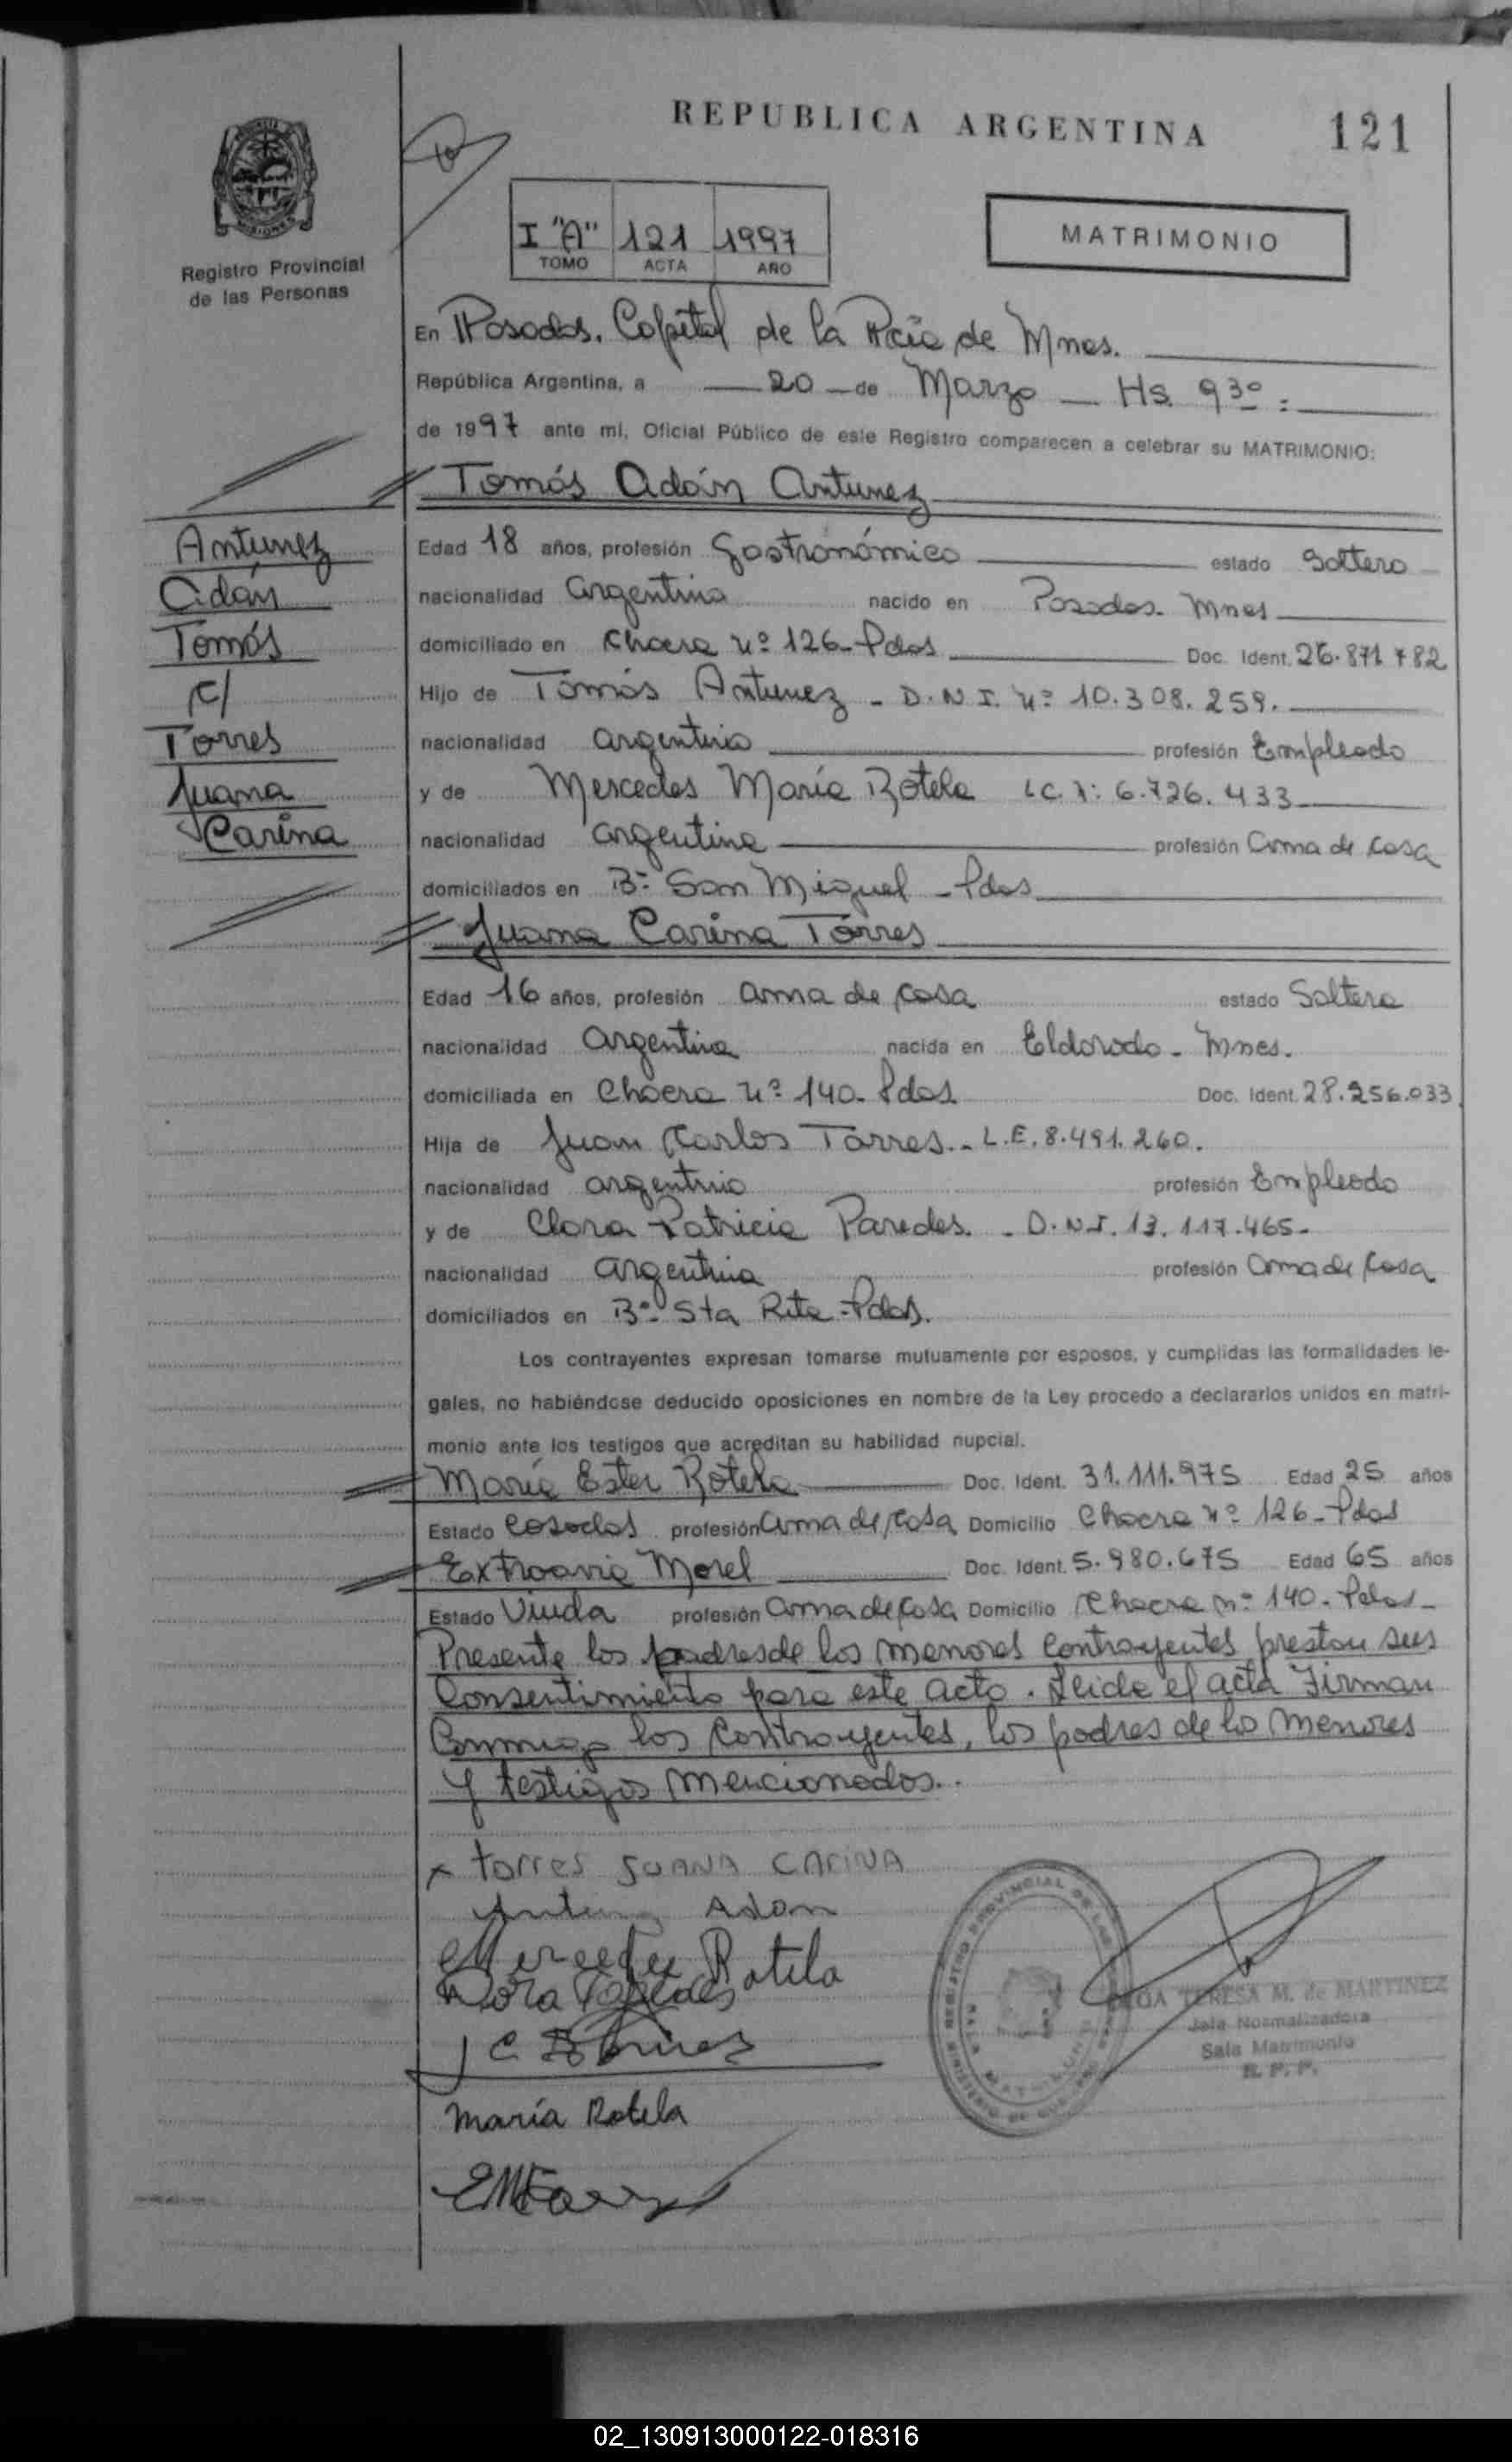 REPUBLICA ARGENTINA
121
Registro Provincial
de las Personas
I "A" 121 1997
TOMO ACTA AÑO
MATRIMONIO
En Posadas. Capital de la Pcia de Mnes.
República Argentina, a 20 de Marzo Hs. 9 30
de 1997 ante mí, Oficial Público de este Registro comparecen a celebrar su MATRIMONIO:
Tomás Adán Antunez
Antunez
Adán
Tomás
c/
Torres
Juana
Carina
Edad 18 años, profesión Gastronómico estado Soltero
nacionalidad argentina nacido en Posadas. Mnes
domiciliado en Chacra nº 126-Pdas Doc. Ident. 26.871.782
Hijo de Tomás Antunez - D.N.I. nº 10.308.259.
nacionalidad argentina profesión Empleado
y de Mercedes María Rotela L.C. nº: 6.726.433
nacionalidad argentina profesión Ama de casa
domiciliados en Bº San Miguel - Pdas
Juana Carina Torres
Edad 16 años, profesión ama de casa estado Soltera
nacionalidad argentina nacida en Eldorado - Mnes.
domiciliada en Chacra nº 140. Pdas Doc. Ident. 28.256.033
Hija de Juan Carlos Torres.. L.E. 8.491.260.
nacionalidad argentina profesión Empleado
y de Clara Patricia Paredes. - D.N.I. 13.117.465-
nacionalidad argentina profesión Ama de Casa
domiciliados en Bº Sta Rita - Pdas.
Los contrayentes expresan tomarse mutuamente por esposos, y cumplidas las formalidades le-
gales, no habiéndose deducido oposiciones en nombre de la Ley procedo a declararlos unidos en matri-
monio ante los testigos que acreditan su habilidad nupcial.
María Ester Rotela Doc. Ident. 31.111.975 Edad 25 años
Estado casada profesión ama de casa Domicilio Chacra nº 126-Pdas
Morel Doc. Ident. 5.980.675 Edad 65 años
Estado Viuda profesión ama de casa Domicilio Chacra nº 140-Pdas-
Presente los padres de los menores contrayentes prestan sus
Consentimiento para este acto. Leida el acta Firman
Conmigo los Contrayentes, los padres de los menores
y testigos mencionados..
x torres JUANA CARINA
Antunez Adan
Mercedes Rotela
Paredes
María Rotela
TERESA M. de MARTINEZ
Jefa Normalizadora
Sala Matrimonio
R. P. P.
02_130913000122-018316